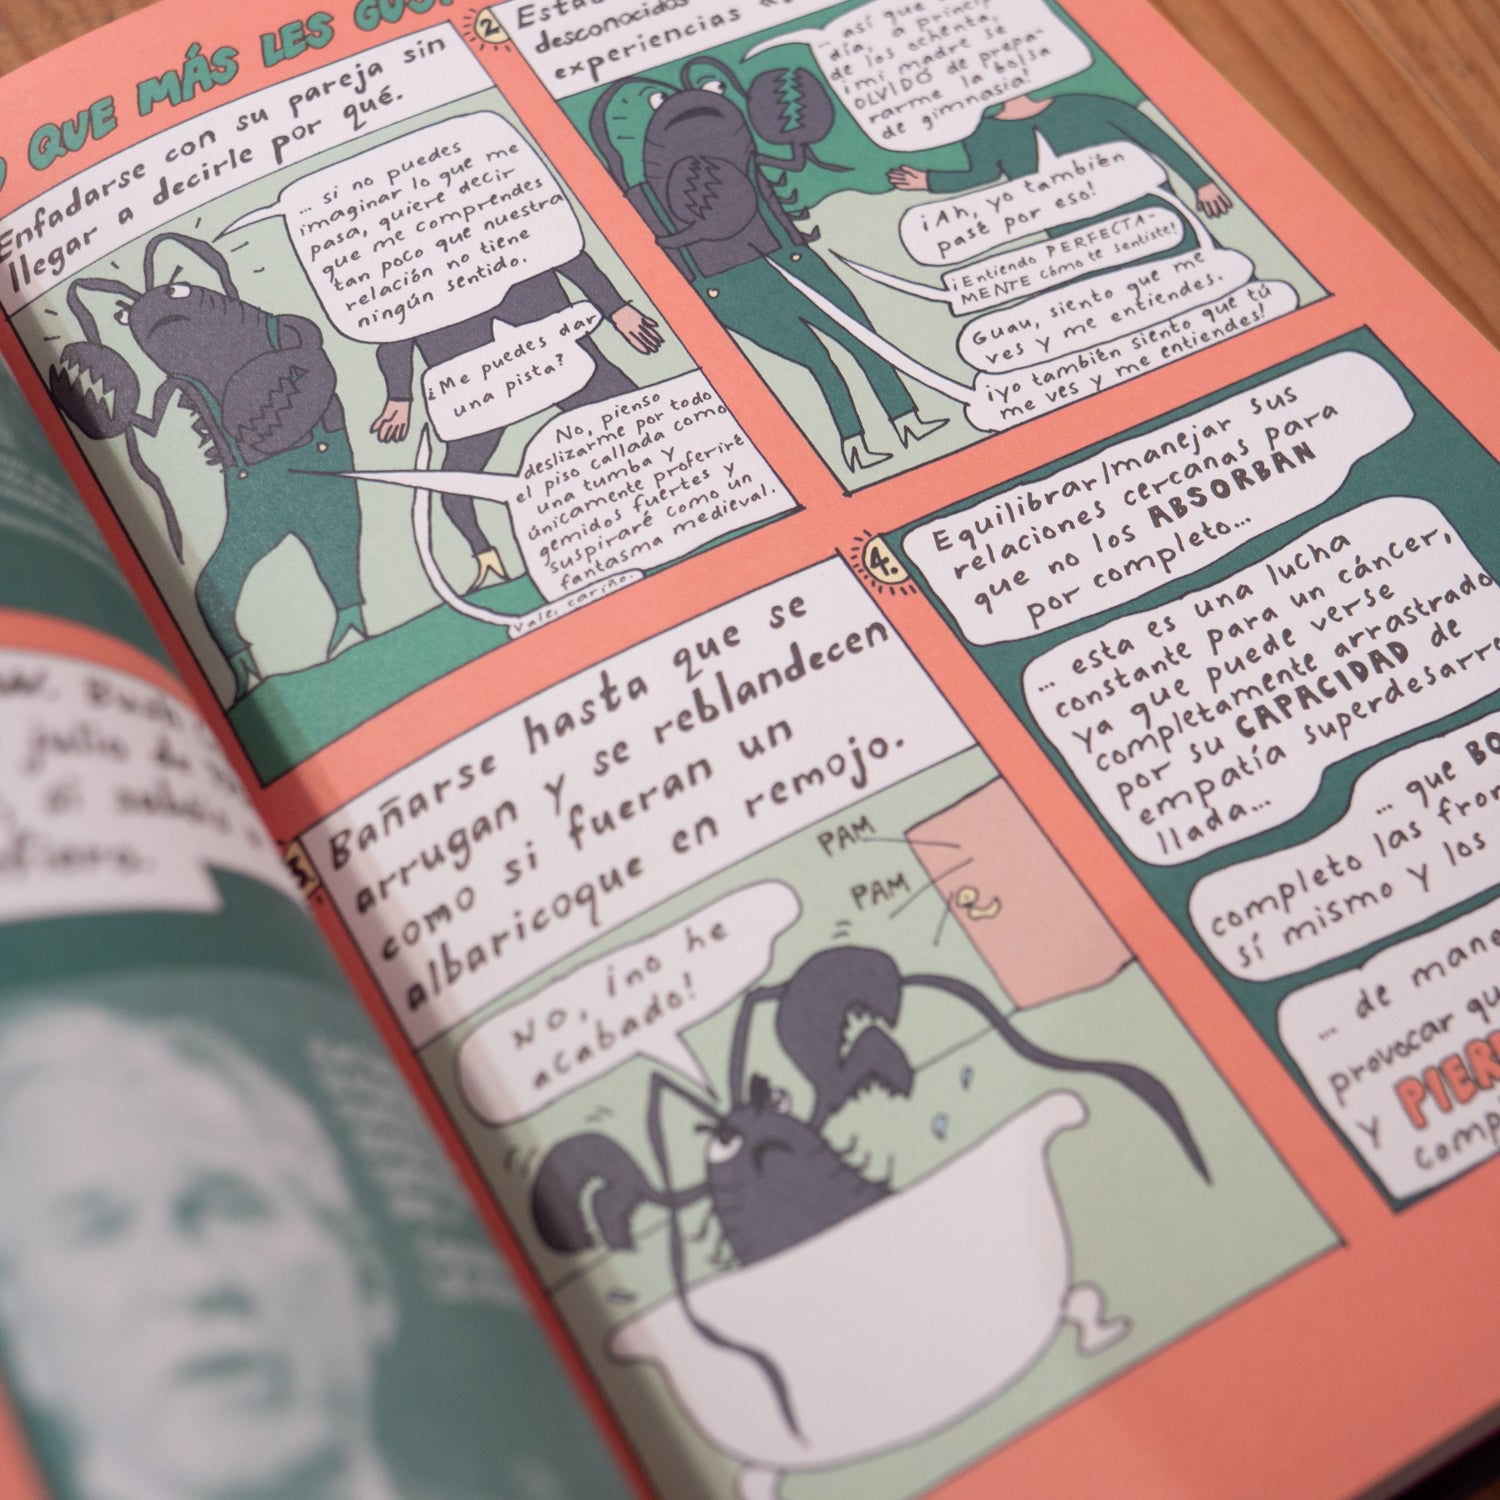 QUE MÁS LES
Enfadarse con su pareja sin
llegar a decirle por qué.
... si no puedes
imaginar lo que me
pasa, quiere decir
que me comprendes
tan poco que nuestra
relación no tiene
ningún sentido.
¿Me puedes dar
una pista?
No, pienso
deslizarme por todo
el piso callada como
una tumba y
únicamente proferiré
gemidos fuertes y
suspiraré como un
fantasma medieval.
Vale, cariño.
2.
desconocidos
experiencias
... así que
día, a
de los ochenta,
¡mi madre se
OLVIDÓ de prepa-
rarme la bolsa
de gimnasia!
¡Ah, yo también
pasé por eso!
¡Entiendo PERFECTA-
MENTE cómo te sentiste!
Guau, siento que me
ves y me entiendes.
¡Yo también siento que tú
me ves y me entiendes!
Bañarse hasta que se
arrugan y se reblandecen
como si fueran un
albaricoque en remojo.
PAM
PAM
NO, ¡no he
acabado!
4.
Equilibrar/manejar sus
relaciones cercanas para
que no los ABSORBAN
por completo...
... esta es una lucha
constante para un cáncer,
ya que puede verse
completamente arrastrado
por su CAPACIDAD de
empatía superdesarro-
llada...
... que
completo las
sí mismo y los
... de
provocar
y